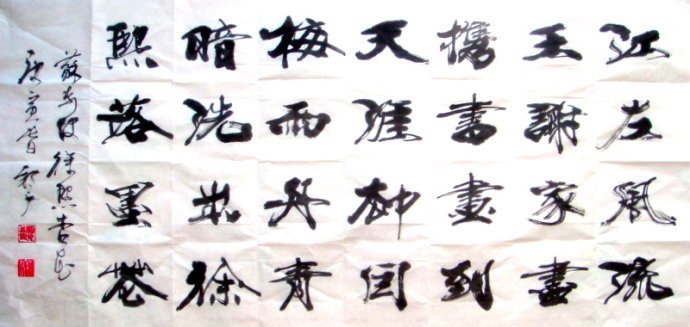 江左風流
王謝家盡
攜書畫到
天涯却因
梅雨丹青
暗洗出徐
熙落墨花
蘇東坡徐熙杏花
庚寅春